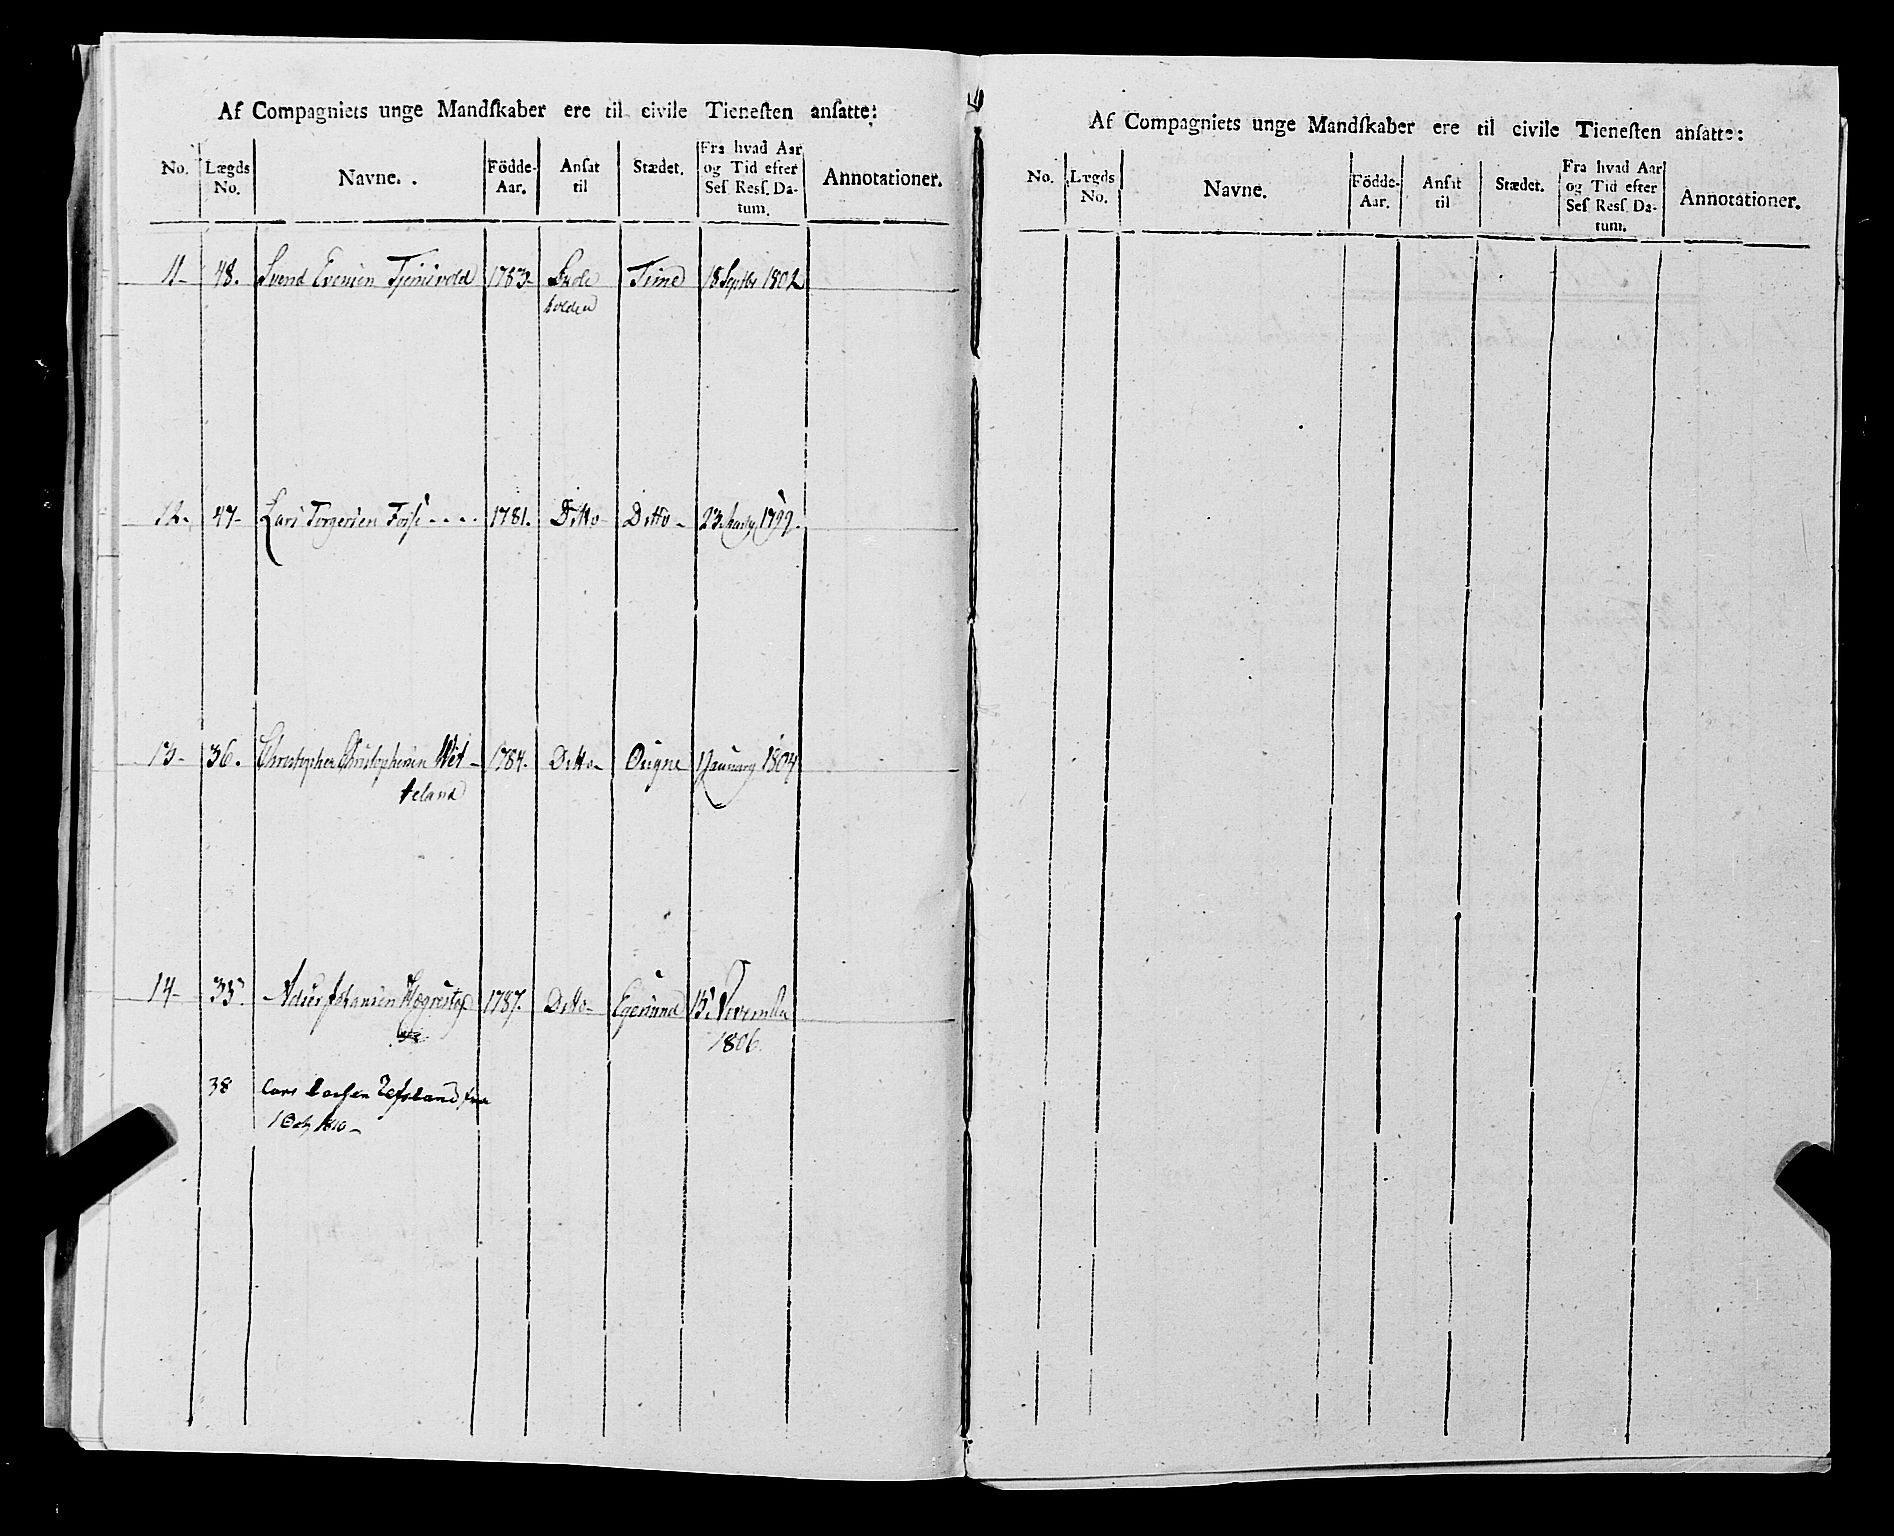 Af Compagniets unge Mandſkaber ere til civile Tieneſten anſatte:
No. Lægds No. Navne. Födde-Aar. Anſat til Stædet. Fra hvad Aar og Tid efter Seſ. Reſſ. Da-tum. Annotationer.
11- 48. Svend Evensen 1783- Time 18 Septbr 1802
holden
12- 47- Lars Torgersen 1781. Ditto Ditto- 23 1799.
13- 36. Christopher Christophersen Wet- 1784- Ditto- Ougne 1 January 1804
teland
14- 35. Johansen 1787. Ditto- Egersund 15 November
1806.
38 Lars fra
1 Oct 1810-
Af Compagniets unge Mandſkaber ere til civile Tieneſten anſatte:
No. Lægds No. Navne. Födde-Aar. Anſat til Stædet. Fra hvad Aar og Tid efter Seſ Reſſ. Da-tum. Annotationer.